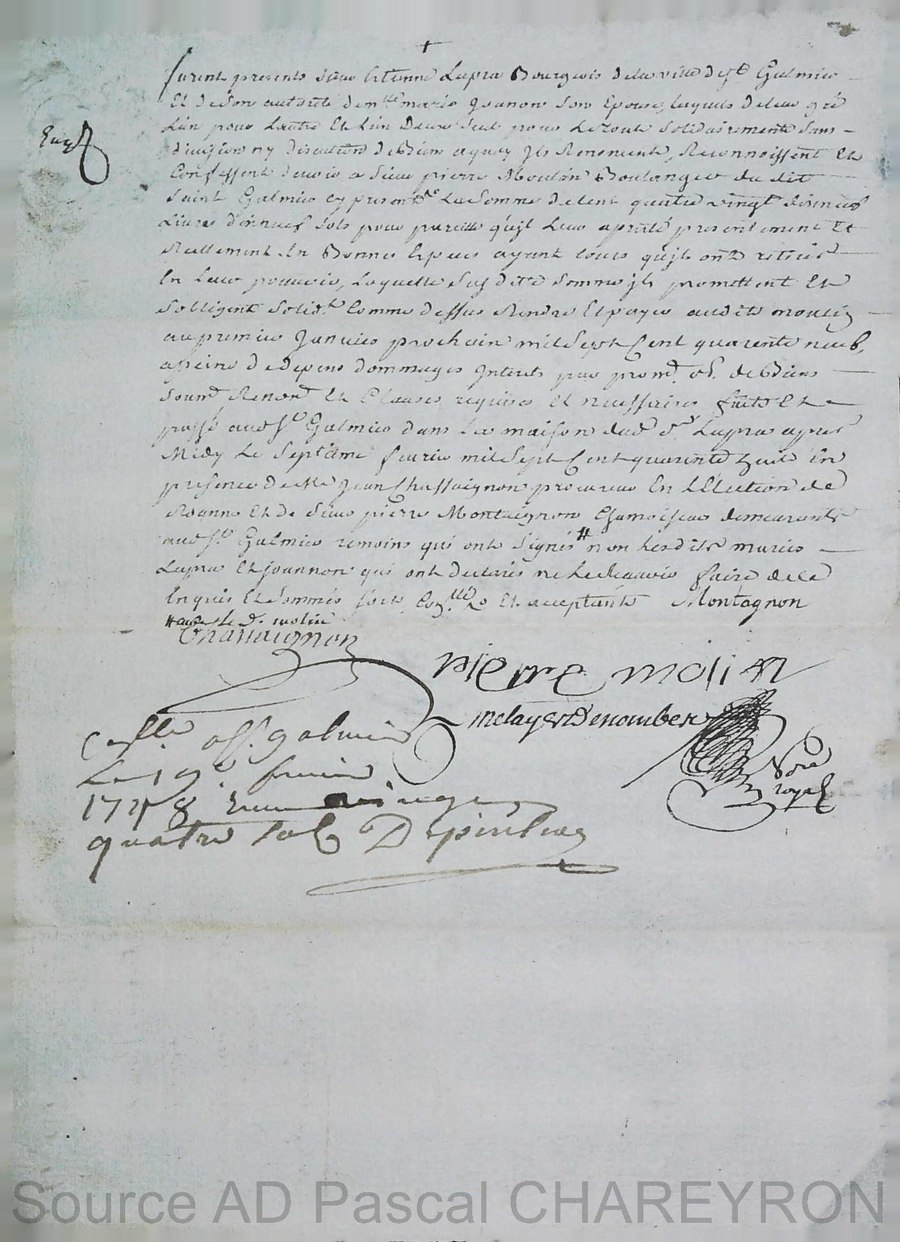 +
furent presents Sieur Etienne Lapra Bourgeois de la ville de St Galmier
Et de Son autorité dem.lle marie Jouanon Son Epouse, lesquels de leur gré
L'un pour L'autre Et L'un D'eux Seul pour Le tout Solidairement Sans
division ny discution de biens aquoy Ils Renoncent, Reconnoissent Et
Confessent devoir a Sieur pierre Moulin Boulanger du dit
Saint Galmier cy present La Somme de Cent quatre vingt dixneuf
Livres dixneuf Sols pour pareille qu'il Leur a preté presentement Et
Reellement En Bonnes Especes ayant Cours qu'ils ont retiré
En Leur pouvoir, Laquelle Susdite Somme ils promettent Et
S'obligent Solid.t Comme dessus Rendre Et payer audit moulin
au premier Janvier prochain mil Sept Cent quarente neuf,
apeine de depens dommages Interets par prom. obl. de biens
Soum. Renon. Et Clauses requises Et necessaires fait Et
passé aud St Galmier dans La maison dud. Sr. Lapra apres
Midy Le Septième fevrier mil Sept Cent quarente huit En
presence de Me Jean Chassaignon procureur En L'Election de
Roanne Et de Sieur pierre Montaignon Chamoiseur demeurants
aud St Galmier temoins qui ont Signés # non Lesdits maries
Lapra Et Jouannon qui ont declarés ne Le Scavoir faire de ce
Enquis Et Sommés et acceptants Montagnon
# avec led. Sr. molin
Chassaignon
pierre molin
Melay
No.re
royal
a St galmier
Le 19e fevrier
1748
quatre sols
Source AD Pascal CHAREYRON